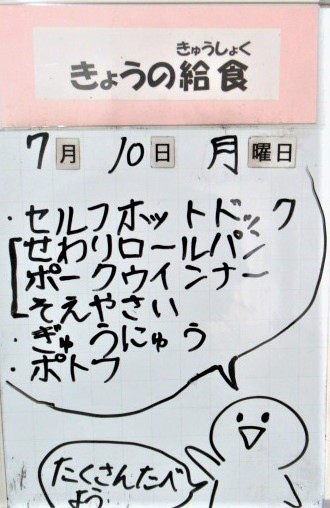 きゅうしょく
きょうの給食
7月 10日 月曜日
・セルフホットドック
せわりロールパン
ポークウインナー
そえやさい
・ぎゅうにゅう
・ポトフ
たくさんたべ
よう